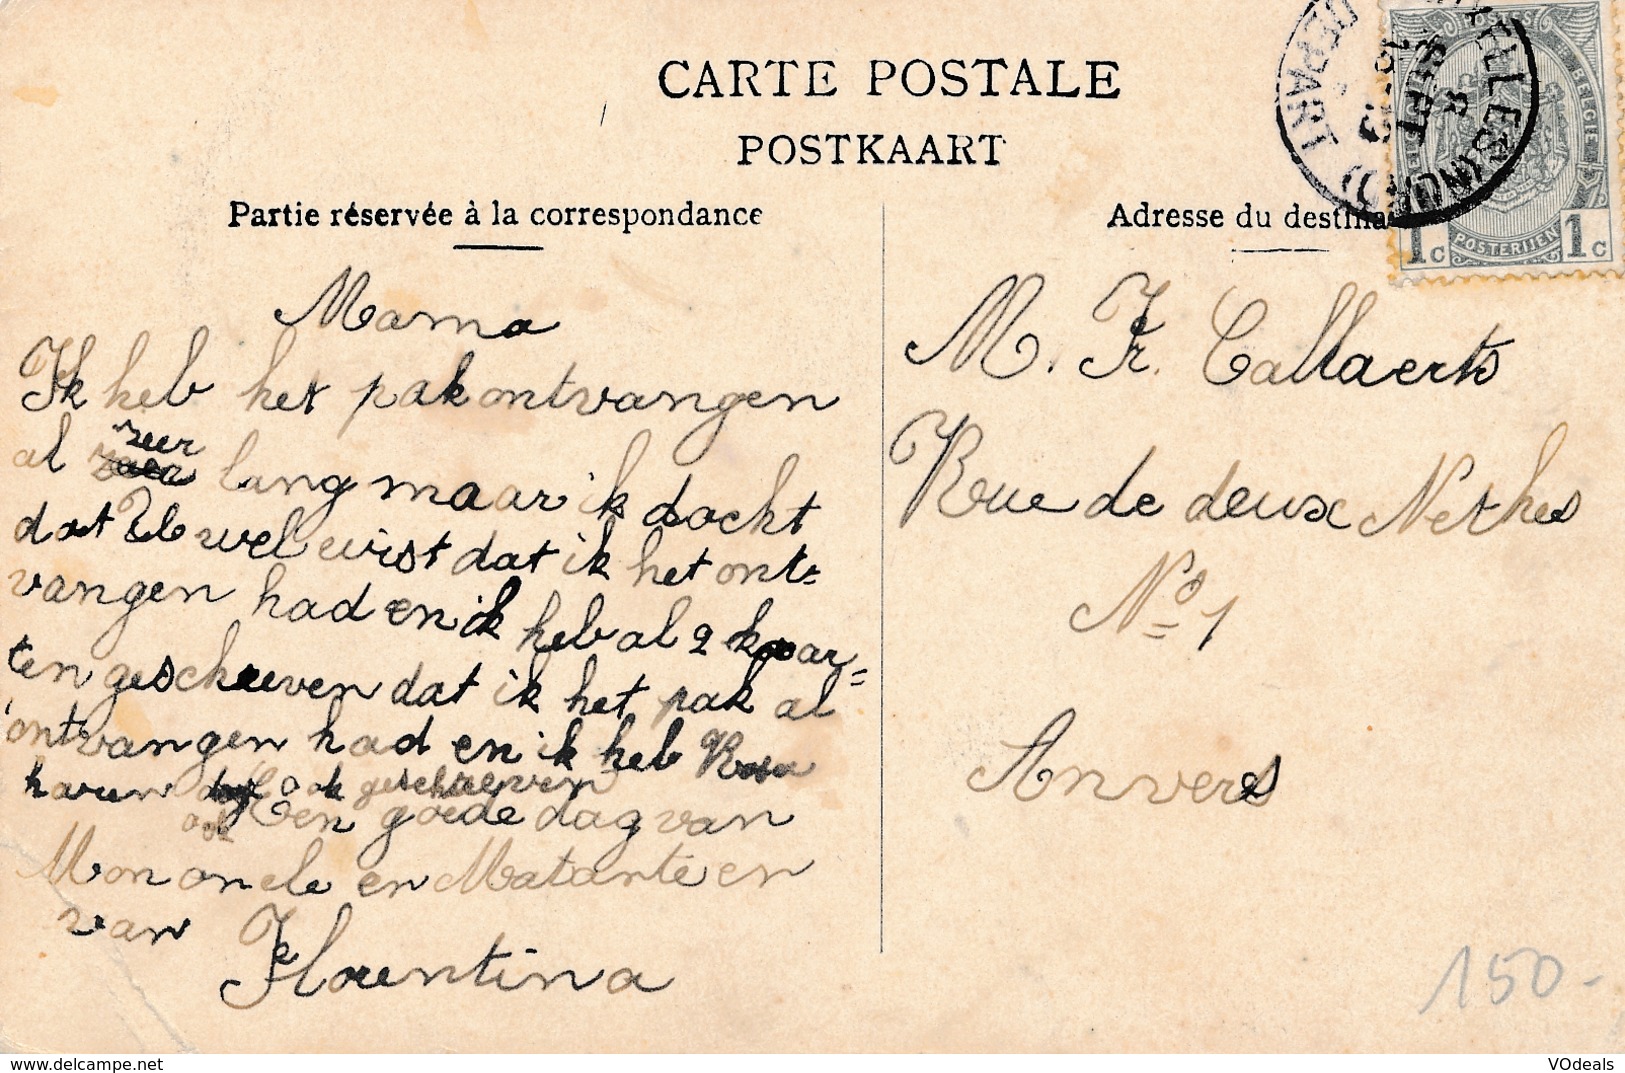 CARTE POSTALE
POSTKAART
Partie réservée à la correspondance
Mama
Ik heb het pak ontvangen
al zeer lang maar ik docht
dat U wel wist dat ik het ont=
vangen had en ik heb al 2 kaar=
ten geschreven dat ik het pak al
ontvangen had en ik heb Rosa
haren ook geschreven
ook Een goede dag van
Mon oncle en Matante en
van
Florentina
Adresse du destina
M. Fr. Callaerts
Rue de deux Nethes
No 1
Anvers
DEPART
8
SEPT
POSTES
BELGIE
1c POSTERIJEN 1c
150.-
VOdeals
delcampe.net